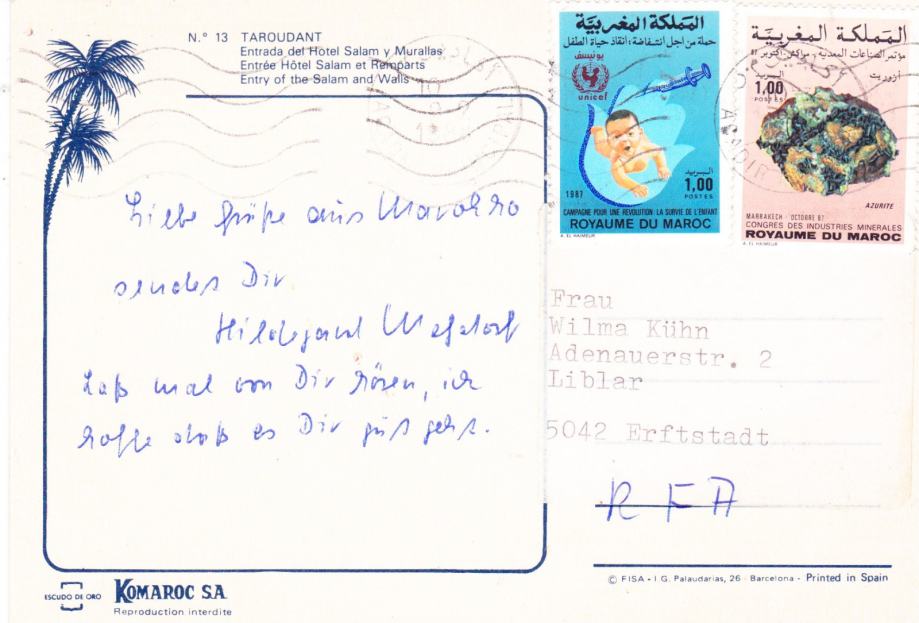 N.º 13 TAROUDANT
Entrada del Hotel Salam y Murallas
Entrée Hôtel Salam et Remparts
Entry of the Salam and Walls
المملكة المغربية
حملة من اجل انتفاضة: انقاذ حياة الطفل
يونيسف
unicef
البريد
1,00
POSTES
1987
CAMPAGNE POUR UNE REVOLUTION: LA SURVIE DE L'ENFANT
ROYAUME DU MAROC
A. EL HAIMEUR
المملكة المغربية
مؤتمر الصناعات المعدنية
أزوريت
البريد
1,00
POSTES
AZURITE
MARRAKECH - OCTOBRE 87
CONGRES DES INDUSTRIES MINERALES
ROYAUME DU MAROC
A. EL HAIMEUR
AGADIR
Liebe Grüße aus Marokko
sendet Dir
Hildegard
Laß mal von Dir hören, ich
hoffe daß es Dir gut geht.
Frau
Wilma Kühn
Adenauerstr. 2
Liblar
5042 Erftstadt
RFA
ESCUDO DE ORO
KOMAROC S.A.
Reproduction interdite
© FISA - I.G. Palaudarias, 26 - Barcelona - Printed in Spain